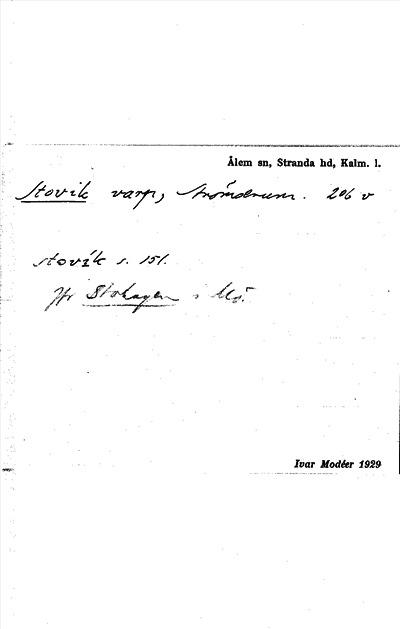 Ålem sn, Stranda hd, Kalm. l.
Stovik varp, Strömsrum. 206 v
stovik s. 151.
Jfr Stohagen i Mö.
Ivar Modéer 1929